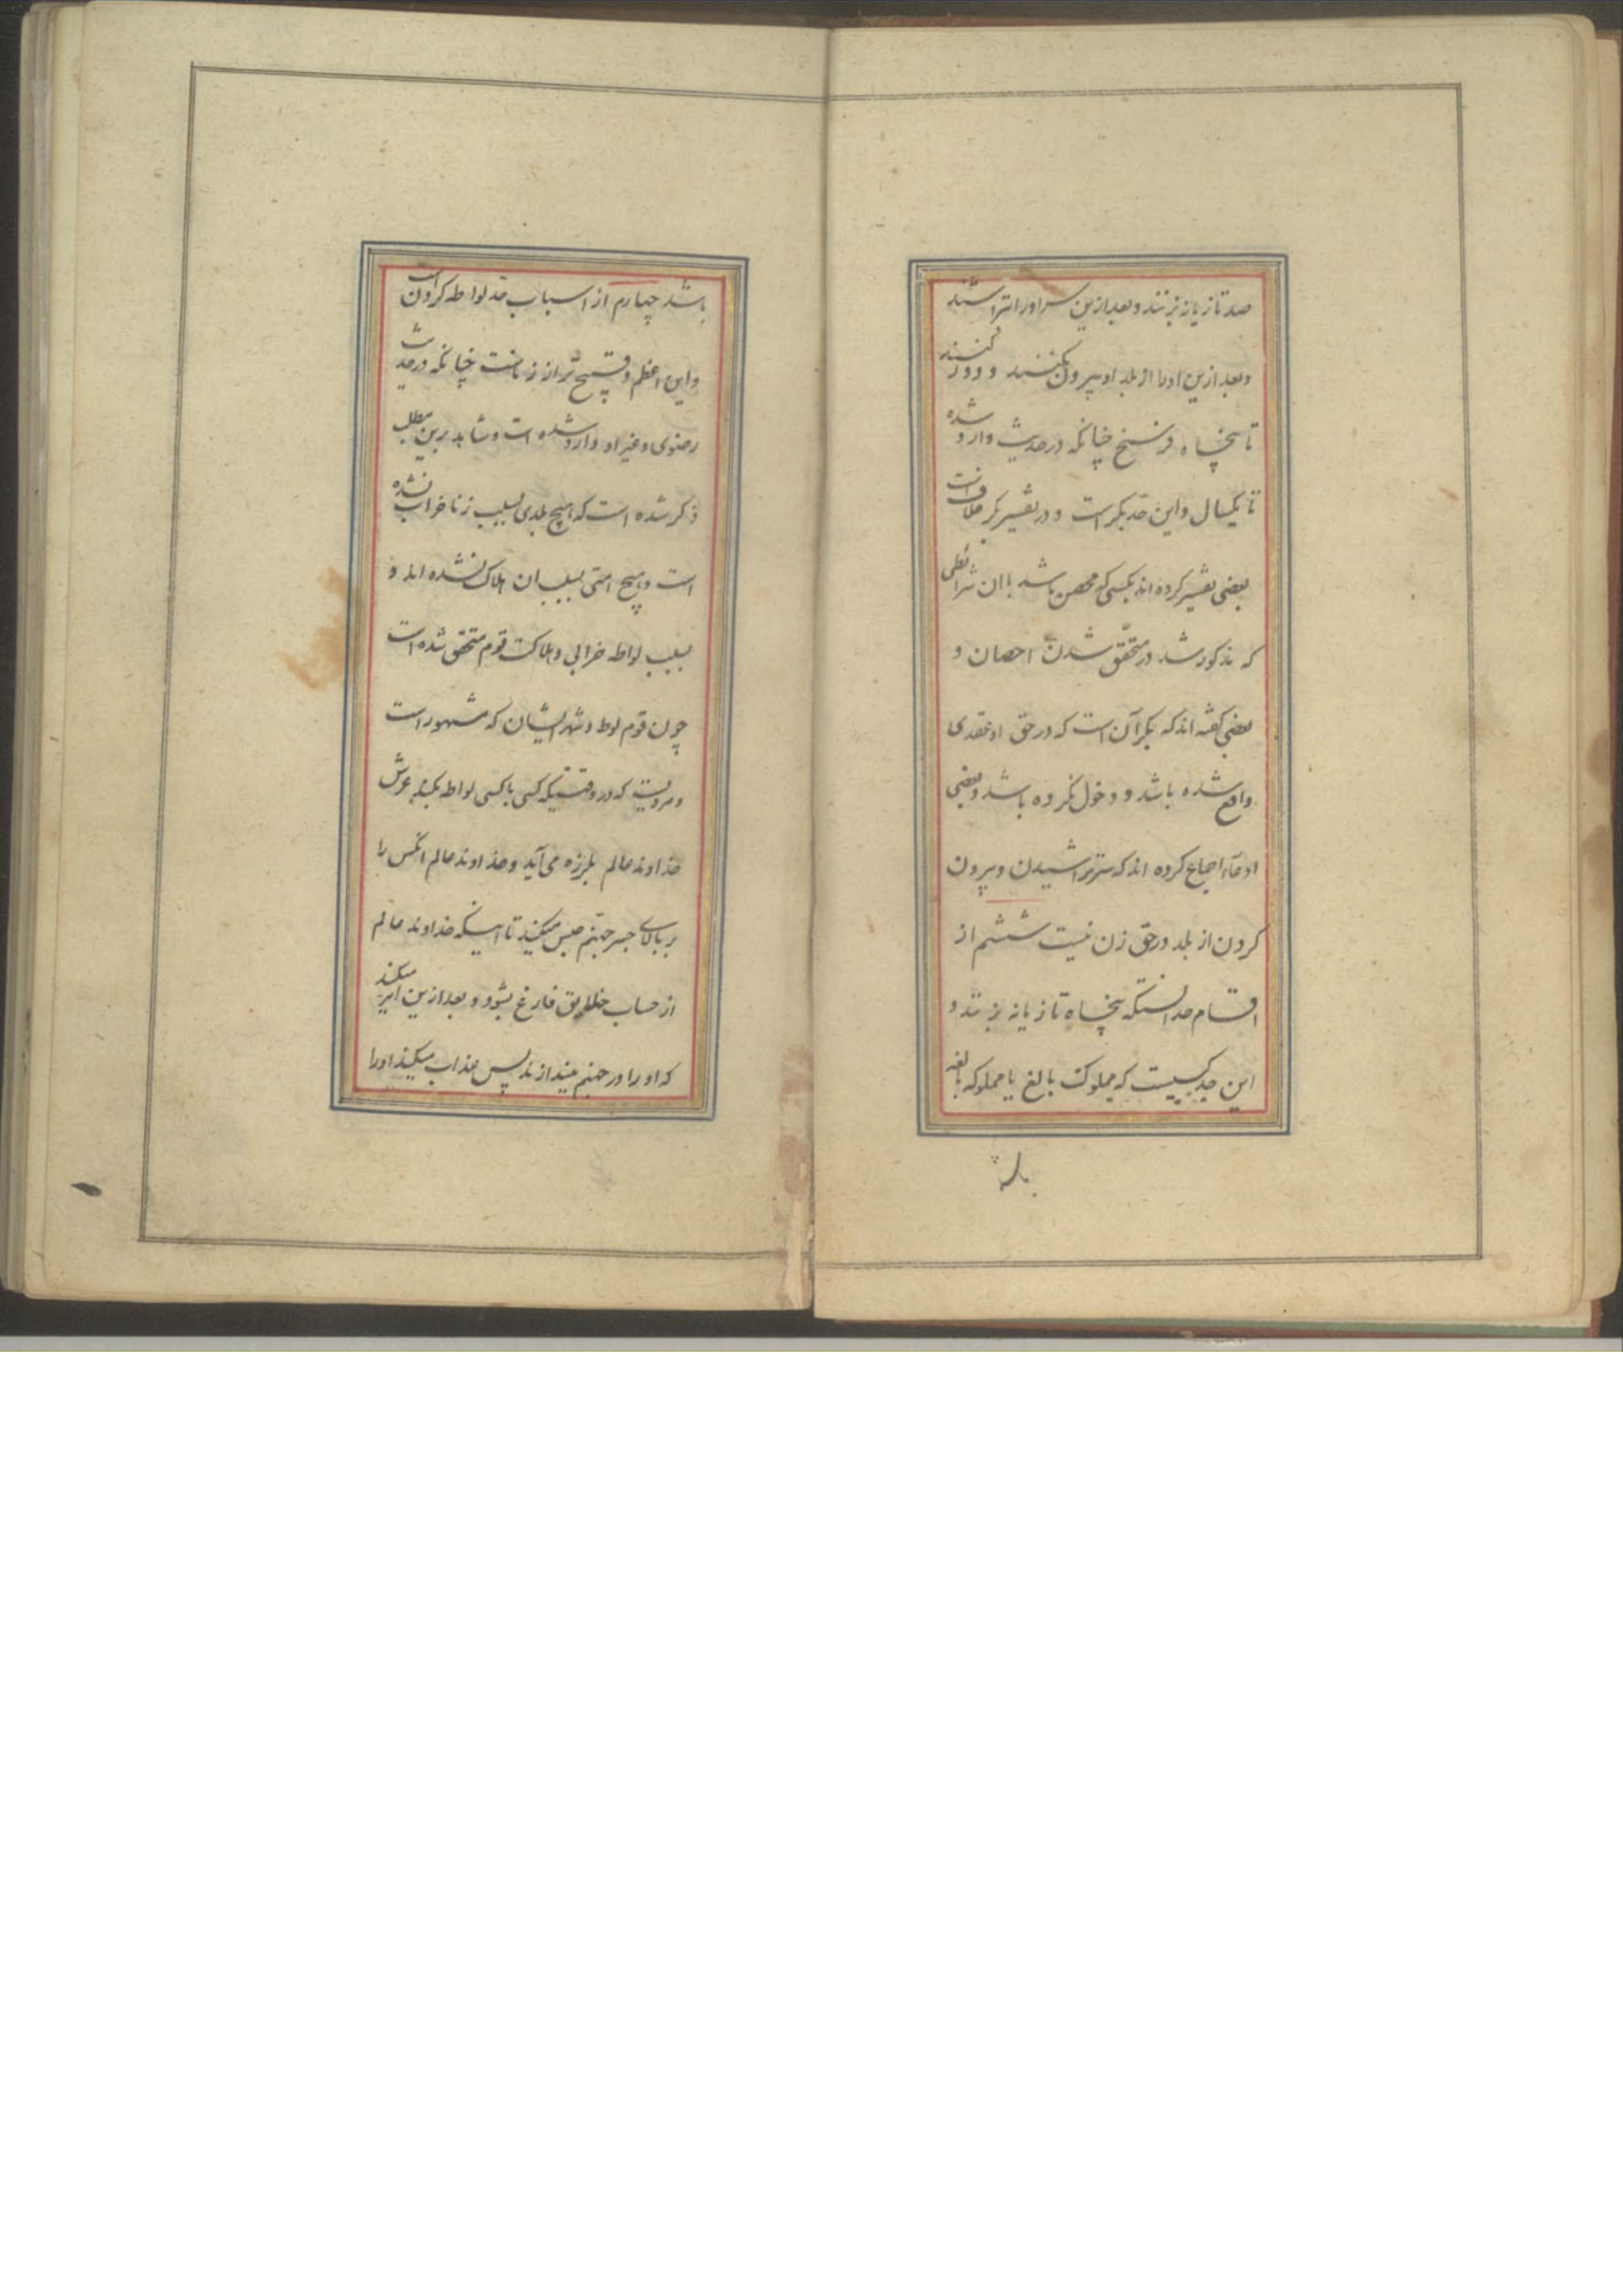 صد تازیانه بزنند و بعد ازین سر او را تراشند
و بعد ازین او را از بلد او بیرون کنند و دور کنند
تا پنجاه فرسخ چنانکه در حدیث وارد شده
تا یکسال و این حد بکر است و در تفسیر بکر خلافست
بعضی تفسیر کرده اند بکسی که محصن باشد با ان شرائطی
که مذکور شد در متحقق شدن احصان و
بعضی گفته اند که بکر آن است که در حق او عقدی
واقع شده باشد و دخول نکرده باشد و بعضی
ادعآء اجماع کرده اند که سر تراشیدن و بیرون
کردن از بلد در حق زن نیست ششم از
اقسام حد انستکه پنجاه تازیانه بزنند و
این حد کسیست که مملوک بالغ یا مملوکه بالغه
باشد چهارم از اسباب حد لواطه کردن است
و این اعظم و قبیح تر از زناست چنانکه در حدیث
رضوی و غیر او وارد شده است و شاهد برین مطلب
ذکر شده است که هیچ بلدی بسبب زنا خراب نشده
است و هیچ امتی بسبب ان هلاک نشده اند و
بسبب لواطه خرابی و هلاکت قوم متحقق شده است
چون قوم لوط و شهر ایشان که مشهور است
و مرویست که در وقتیکه کسی با کسی لواطه بکند عرش
خداوند عالم بلرزه می آید و خداوند عالم انکس را
بر بالای جسر جهنم حبس میکند تا اینکه خداوند عالم
از حساب خلایق فارغ بشود و بعد ازین امر میکند
که او را در جهنم میندازند پس عذاب میکند او را